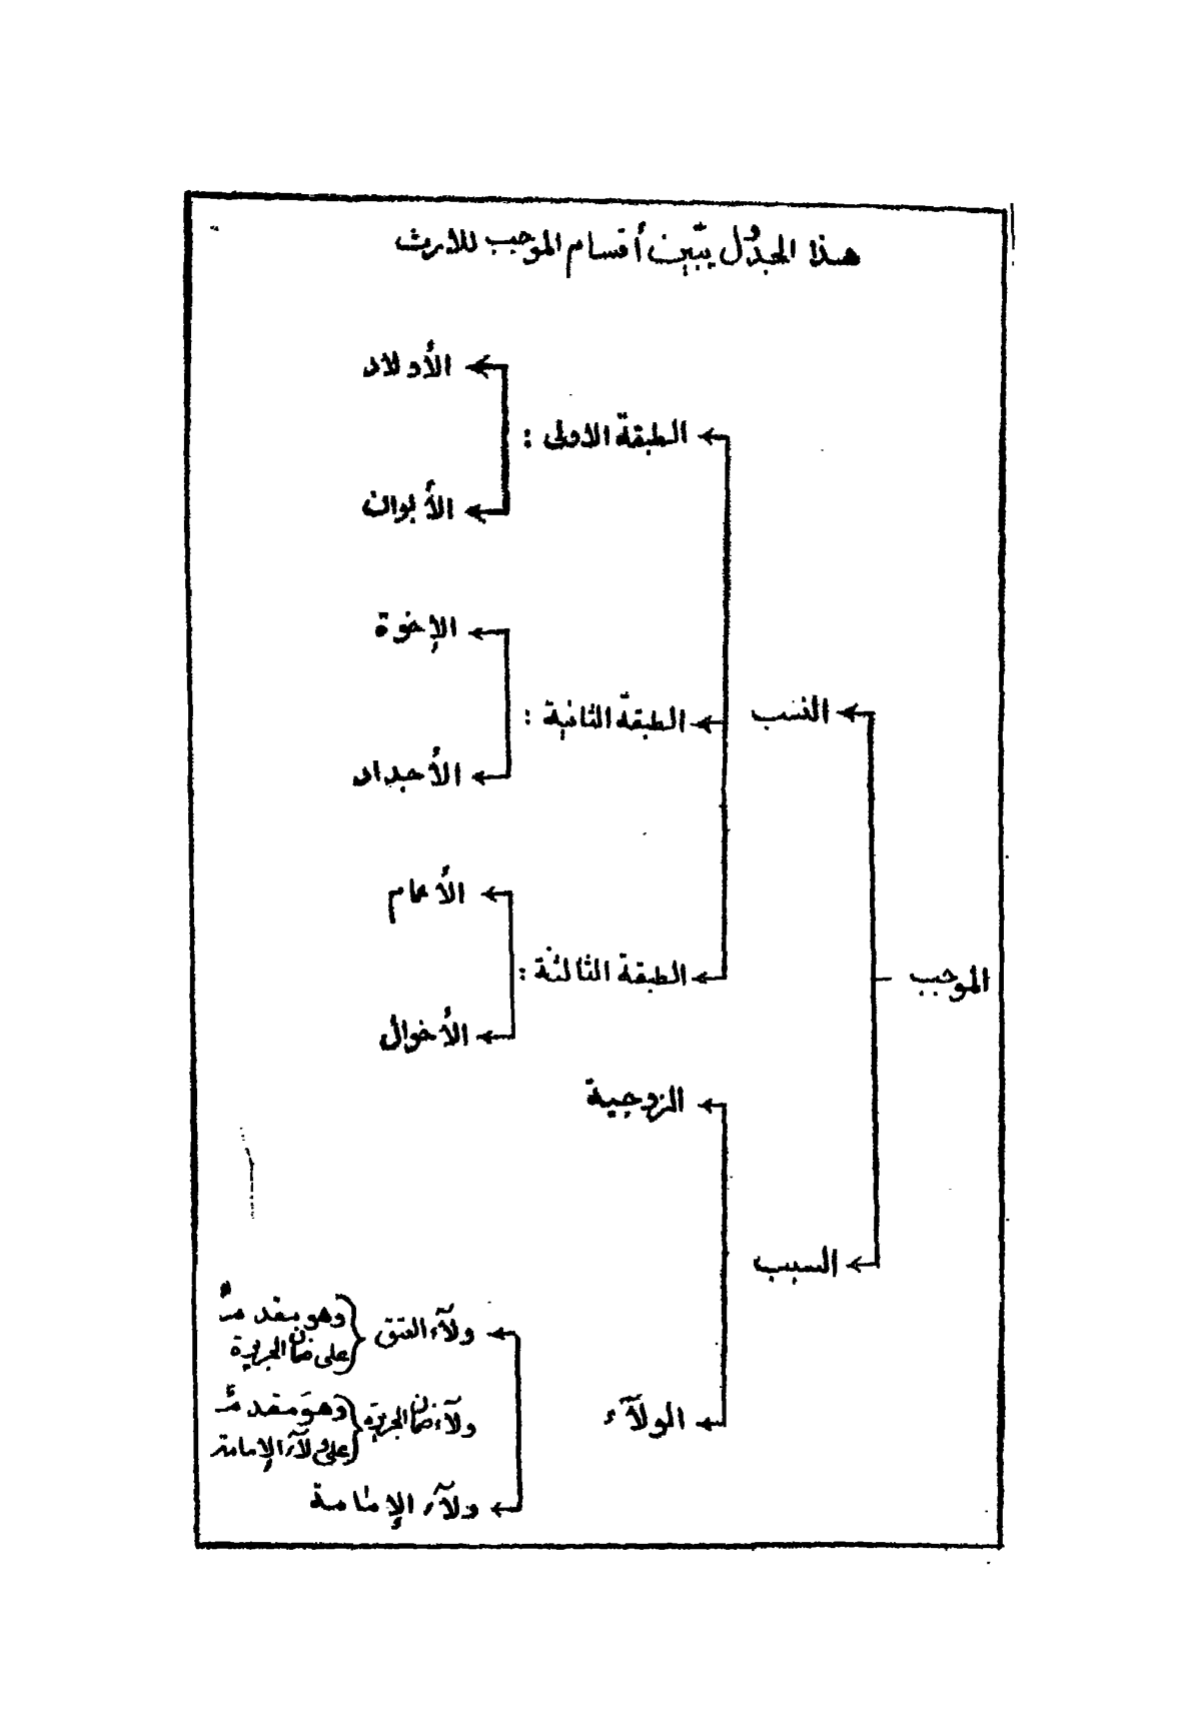 هذا الجدول يبّين أقسام الموجب للارث
الموجب
النسب
الطبقة الاولى :
الأولاد
الأبوان
الطبقة الثانية :
الإخوة
الأجداد
الطبقة الثالثة :
الأعمام
الأخوال
السبب
الزوجية
الولآء
ولآء العتق
وهو مقدمٌ
على ضمان الجريرة
ولآء ضمان الجريرة
وهو مقدمٌ
على ولآء الإمامة
ولآء الإمامة